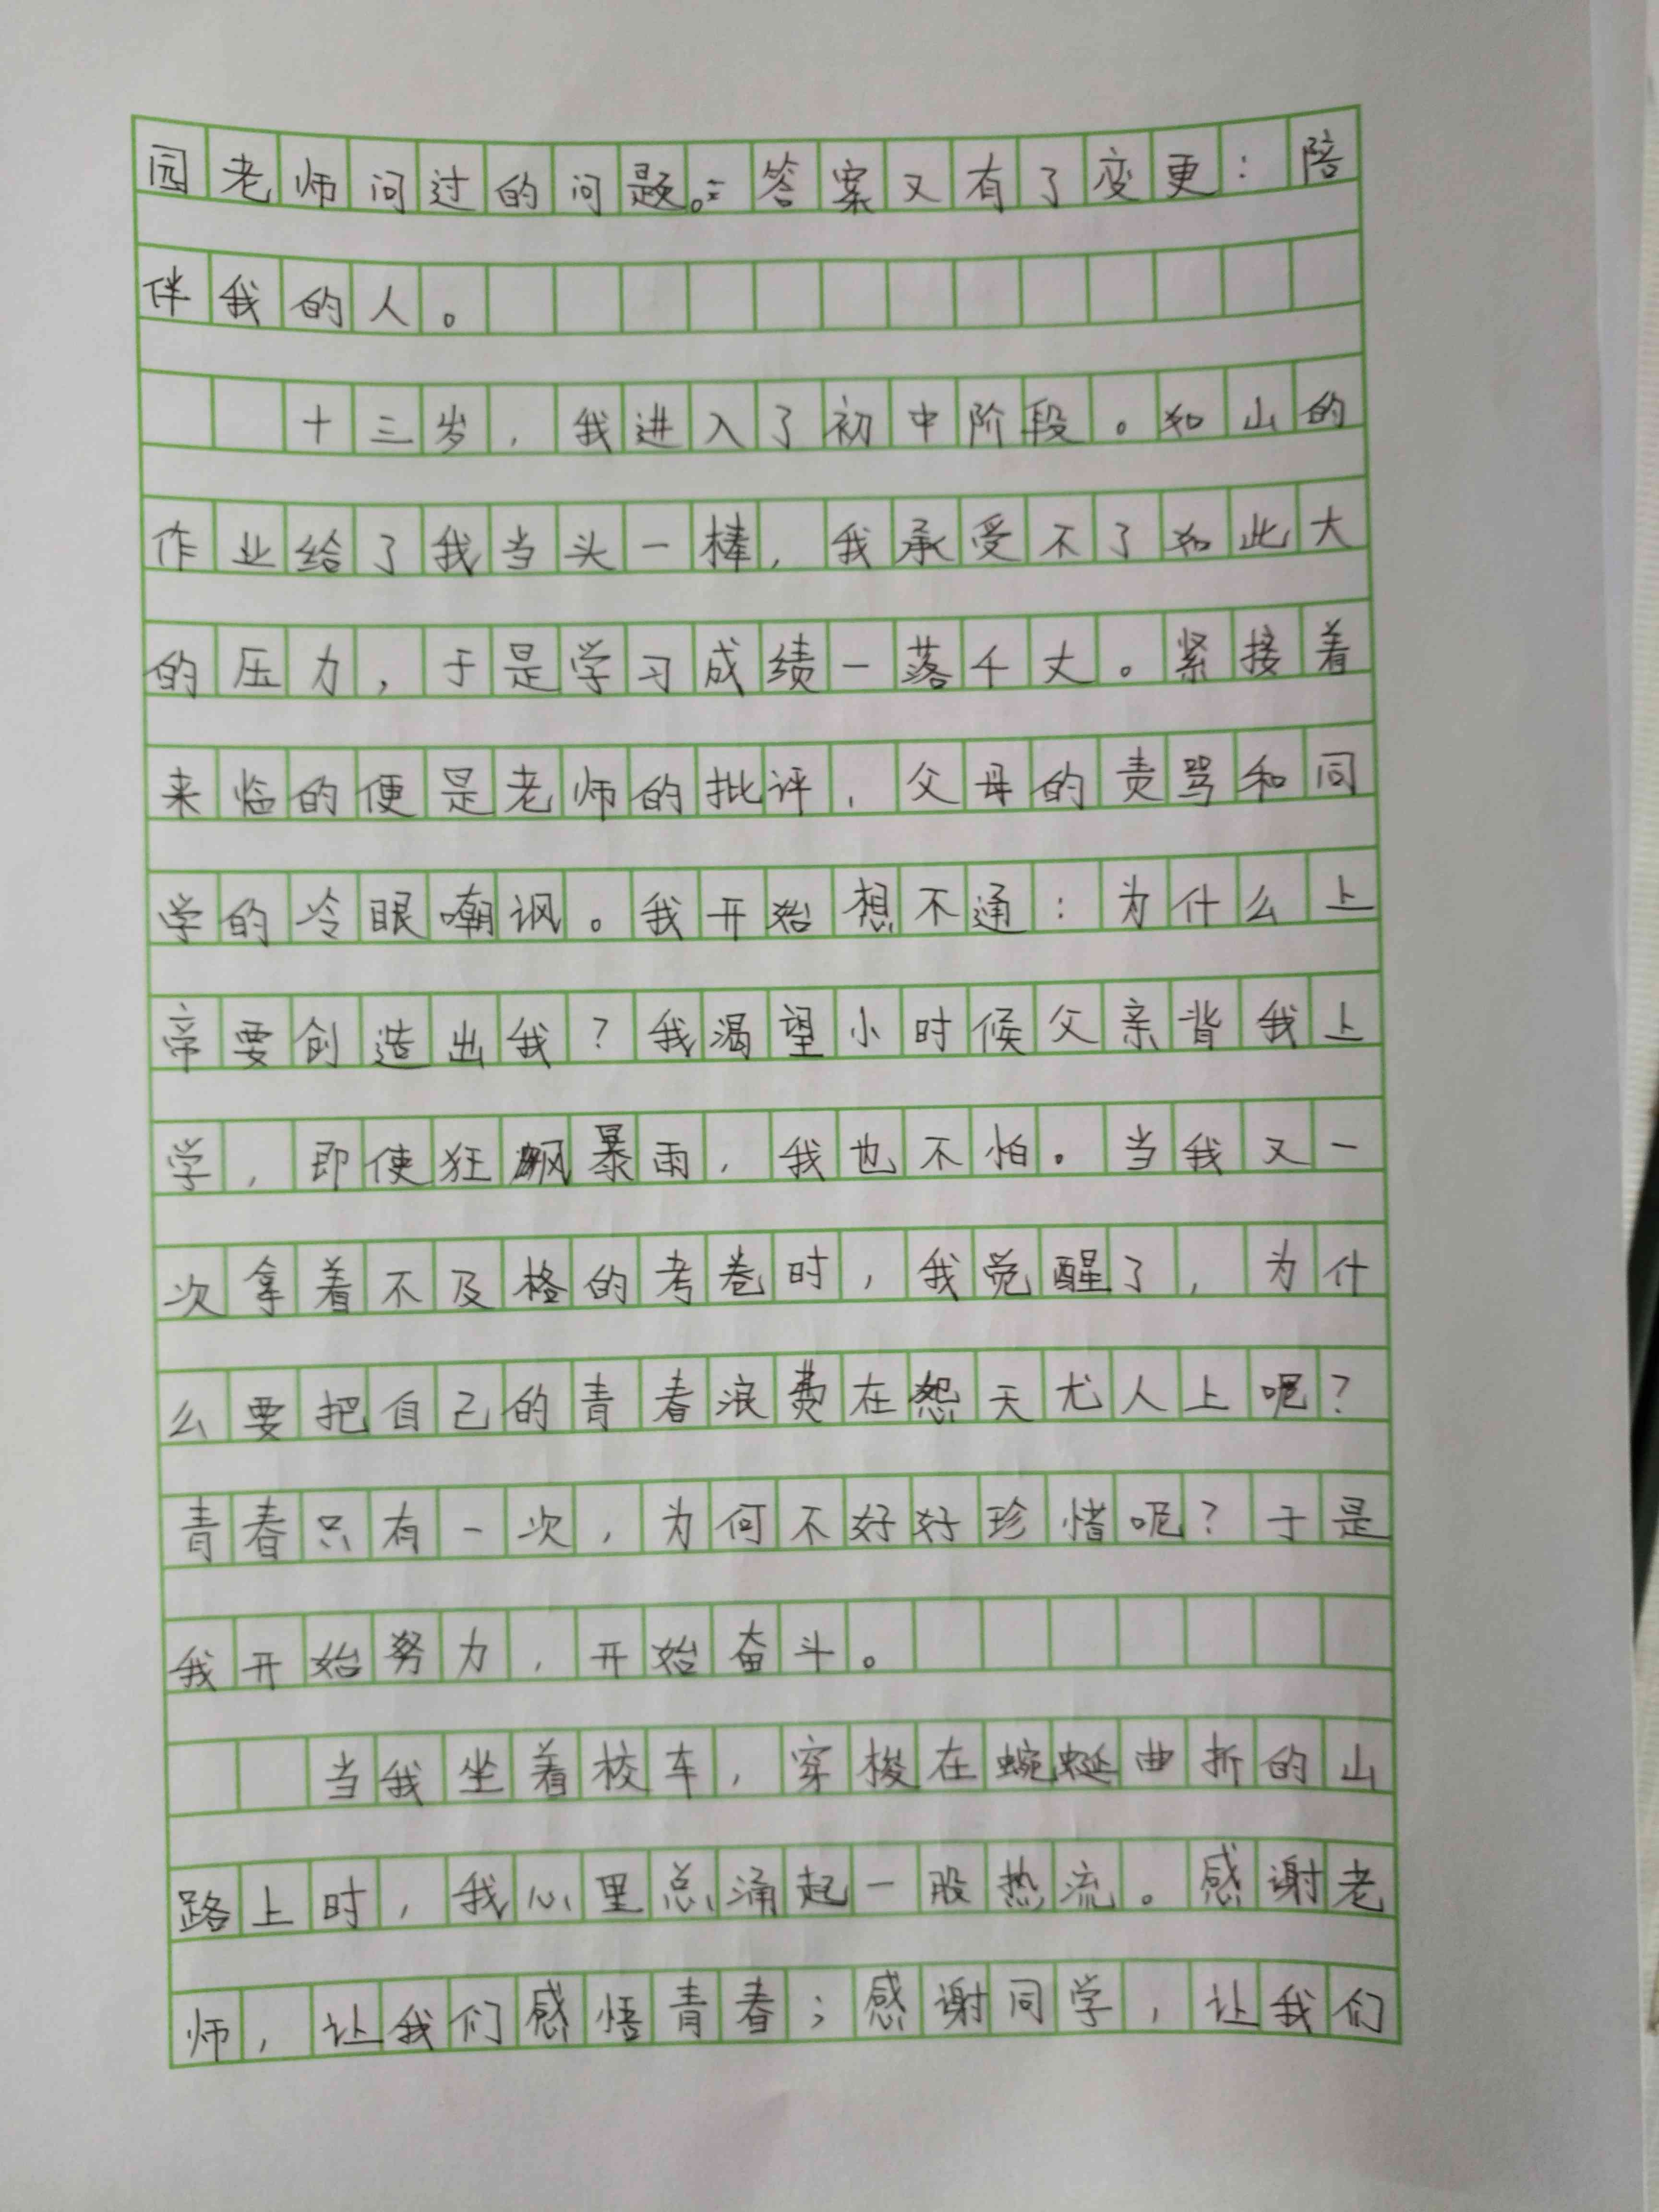 园老师问过的问题。答案又有了变更：陪
伴我的人。
十三岁，我进入了初中阶段。如山的
作业给了我当头一棒，我承受不了如此大
的压力，于是学习成绩一落千丈。紧接着
来临的便是老师的批评，父母的责骂和同
学的冷眼嘲讽。我开始想不通：为什么上
帝要创造出我？我渴望小时候父亲背我上
学，即使狂飙暴雨，我也不怕。当我又一
次拿着不及格的考卷时，我觉醒了，为什
么要把自己的青春浪费在怨天尤人上呢？
青春只有一次，为何不好好珍惜呢？于是
我开始努力，开始奋斗。
当我坐着校车，穿梭在蜿蜒曲折的山
路上时，我心里总涌起一股热流。感谢老
师，让我们感悟青春；感谢同学，让我们